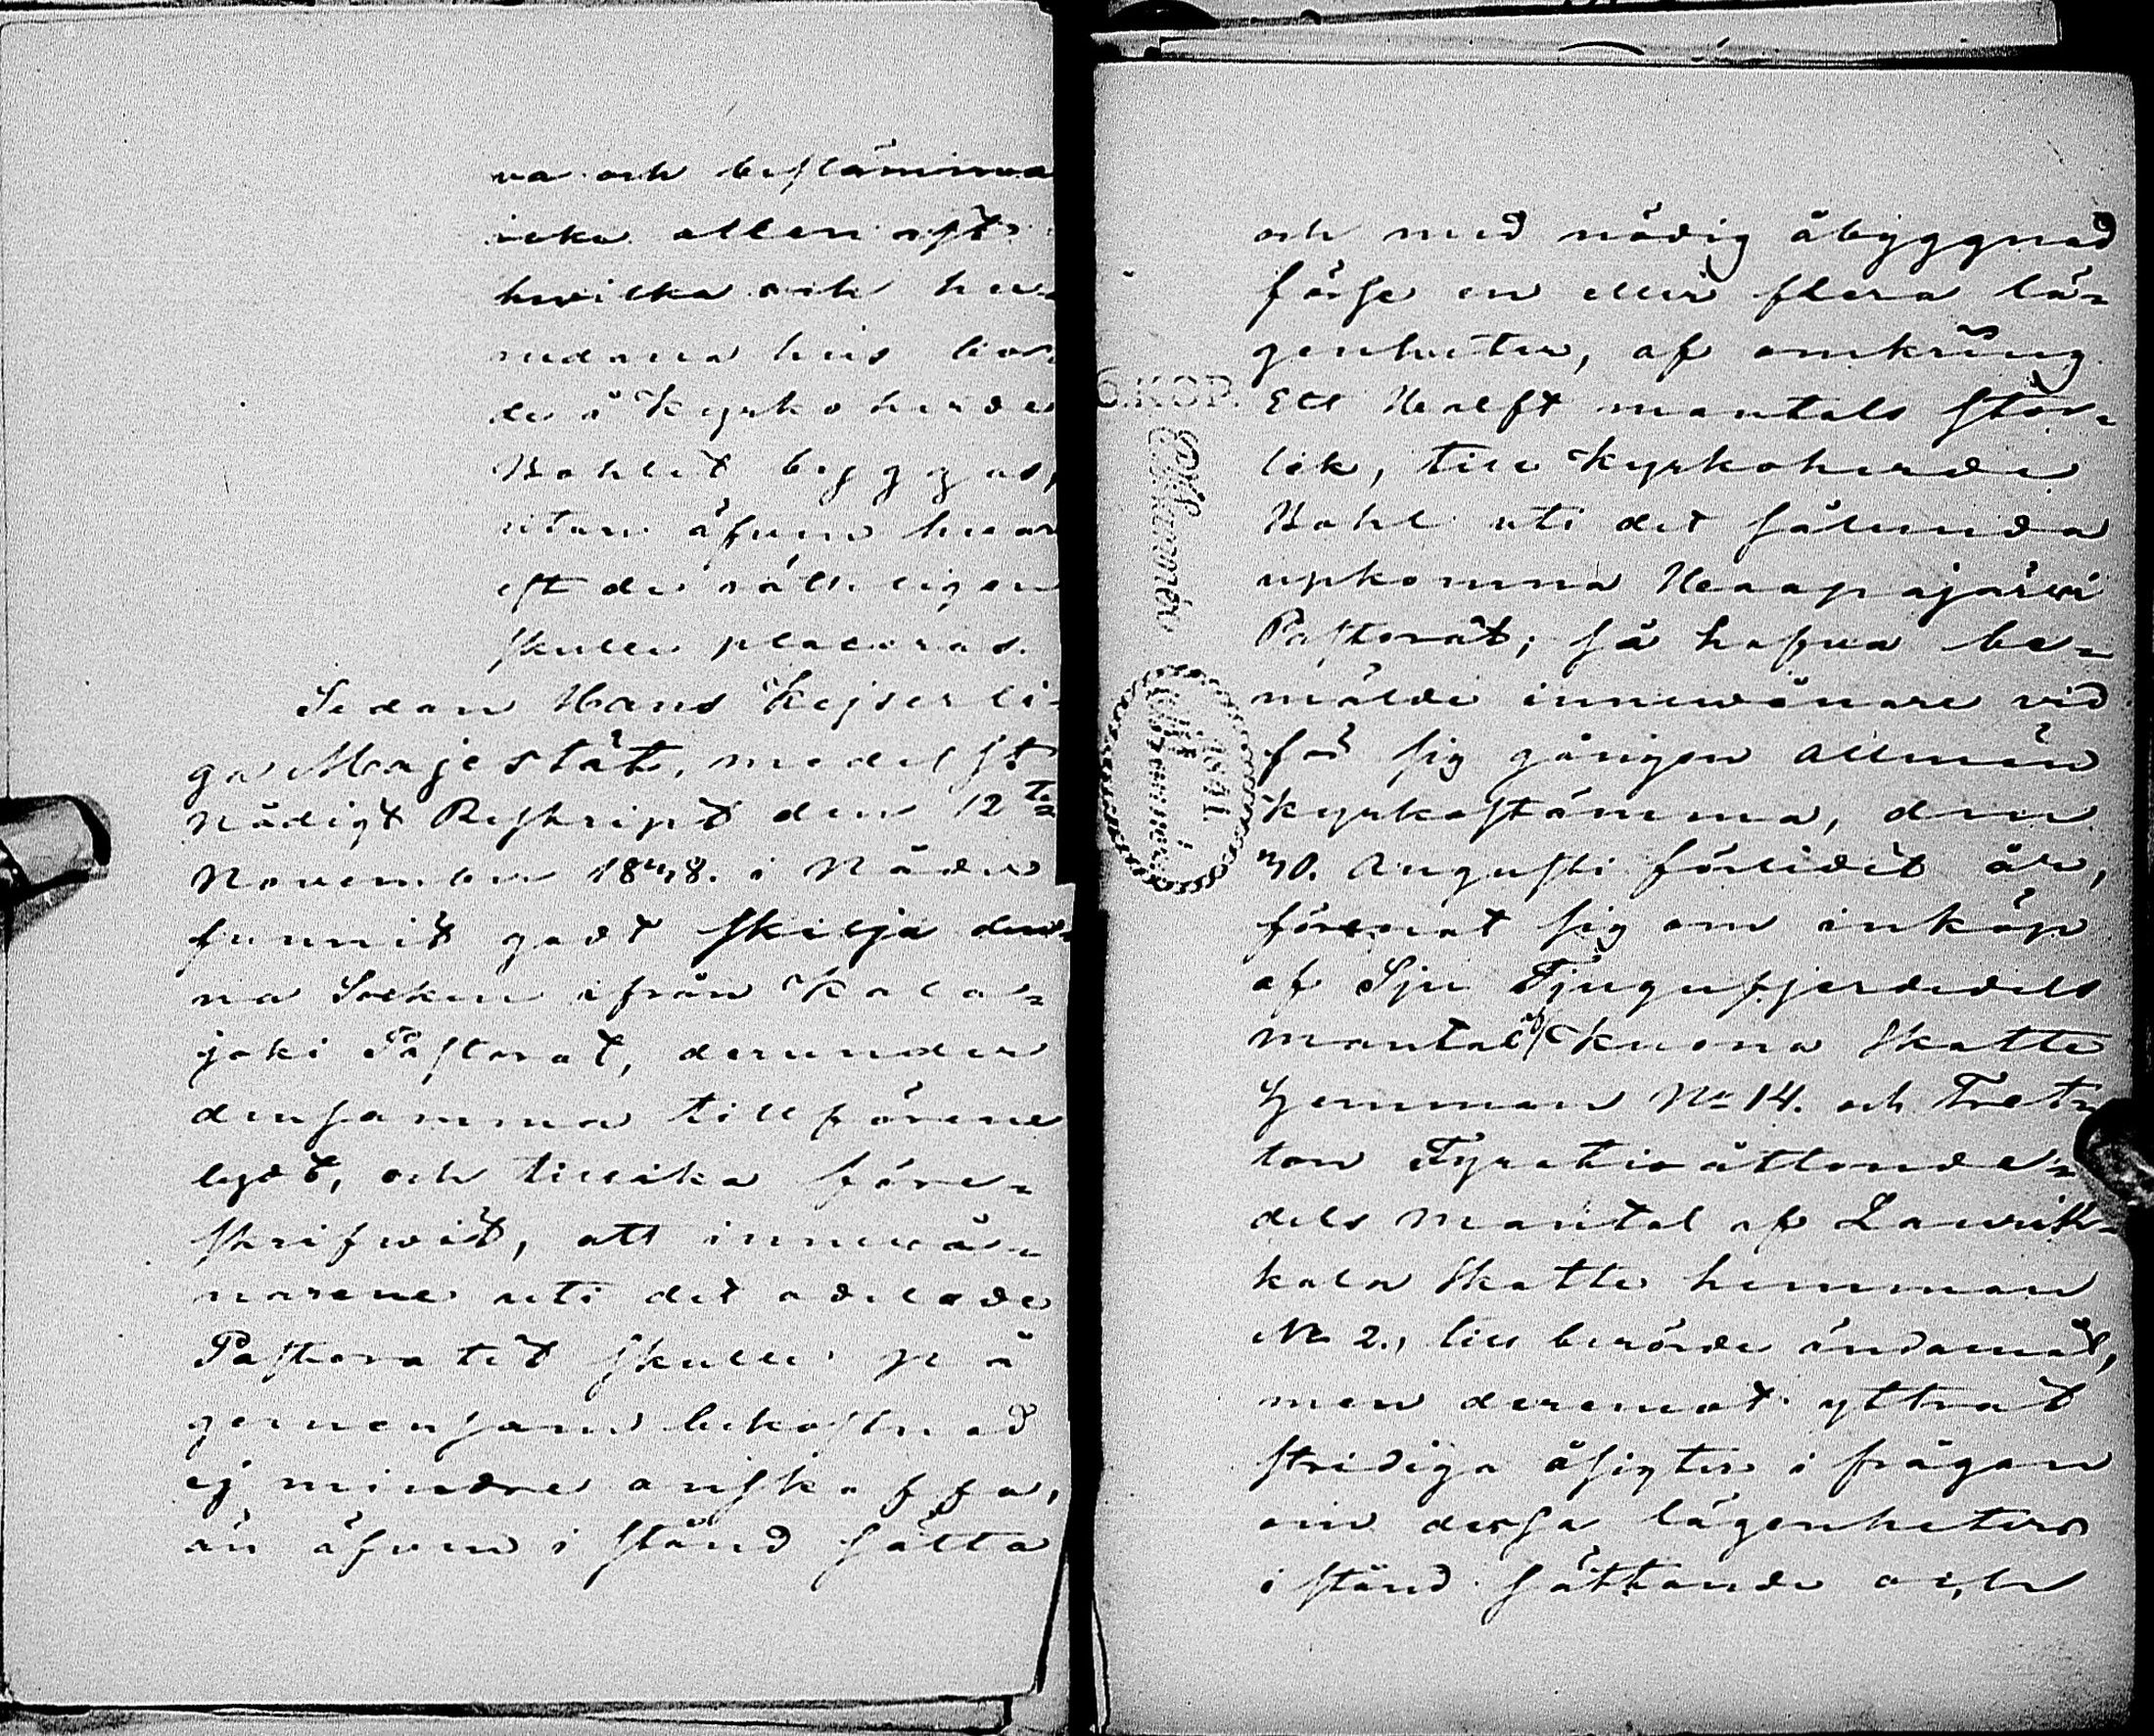 va och bestämma
icke allenast
hvilka och hu-
rudana hus bor-
de å Kyrkoherde
Bohlet byggas,
utan äfven hvar-
est de rätteligen
skulle placeras.
Sedan Hans Kejserli-
ga Majestät, medelst
Nådigt Reskript den 12te
November 1848. i Nåder
funnit godt skilja den-
na Socken ifrån Kala-
joki Pastorat, derunder
densamma tillförene
lydt, och tillika före-
skrifwit, att innewå-
narene uti det adelade
Pastoratet skulle på
gemensam bekostnad
ej mindre anskaffa,
än äfven i stånd sätta
och med nödig åbyggnad
förse en eller flera lä-
genheter, af omkring
Ett Halft mantals stor-
lek, till Kyrkoherde
Bohl uti det sålunda
upkomna Haapajärvi
Pastorat; så hafva be-
mälde innewånare vid
för sig gången allmän
Kyrkostämma, den
30. Augusti förlidet år,
förenat sig om inköp
af Sju Tjugufjerdedels
mantal af Kuona Skatte
Hemman No 14. och Tret-
ton Fyratioåttonde-
dels Mantal af Laurik-
kala Skatte hemman
No 2., till berörde ändamål,
men deremot yttrat
stridiga åsigter i frågan
om dessa lägenheters
i stånd sättande och